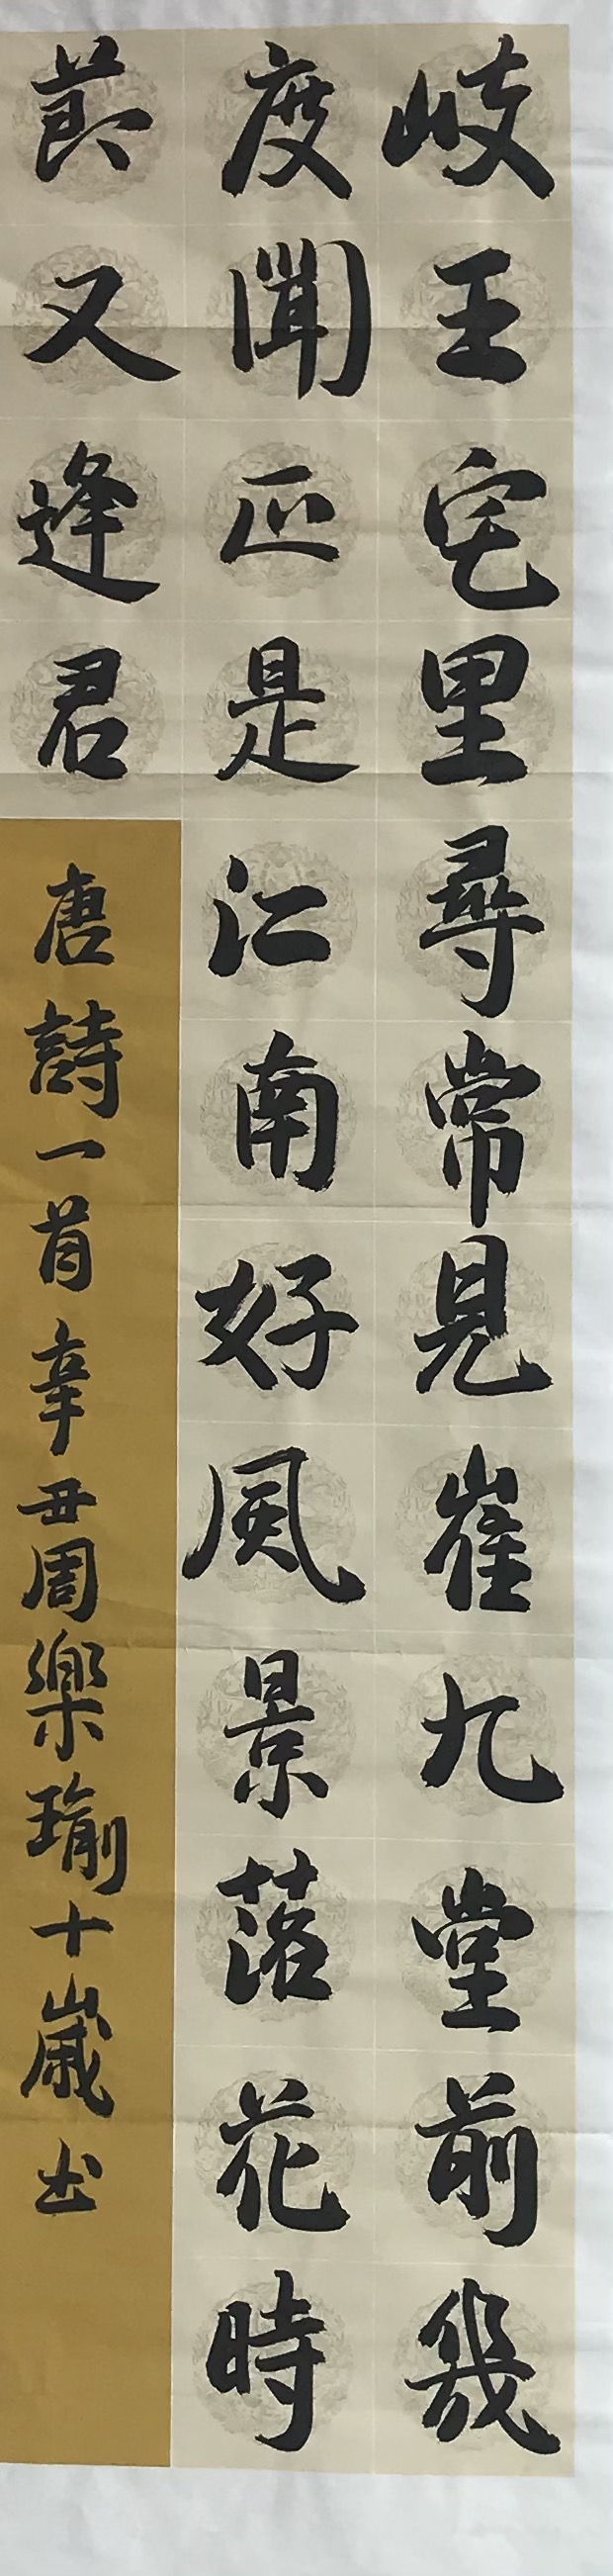 岐王宅里尋常見崔九堂前幾
度聞正是江南好風景落花時
節又逢君
唐詩一首辛丑周樂瑜十歲书